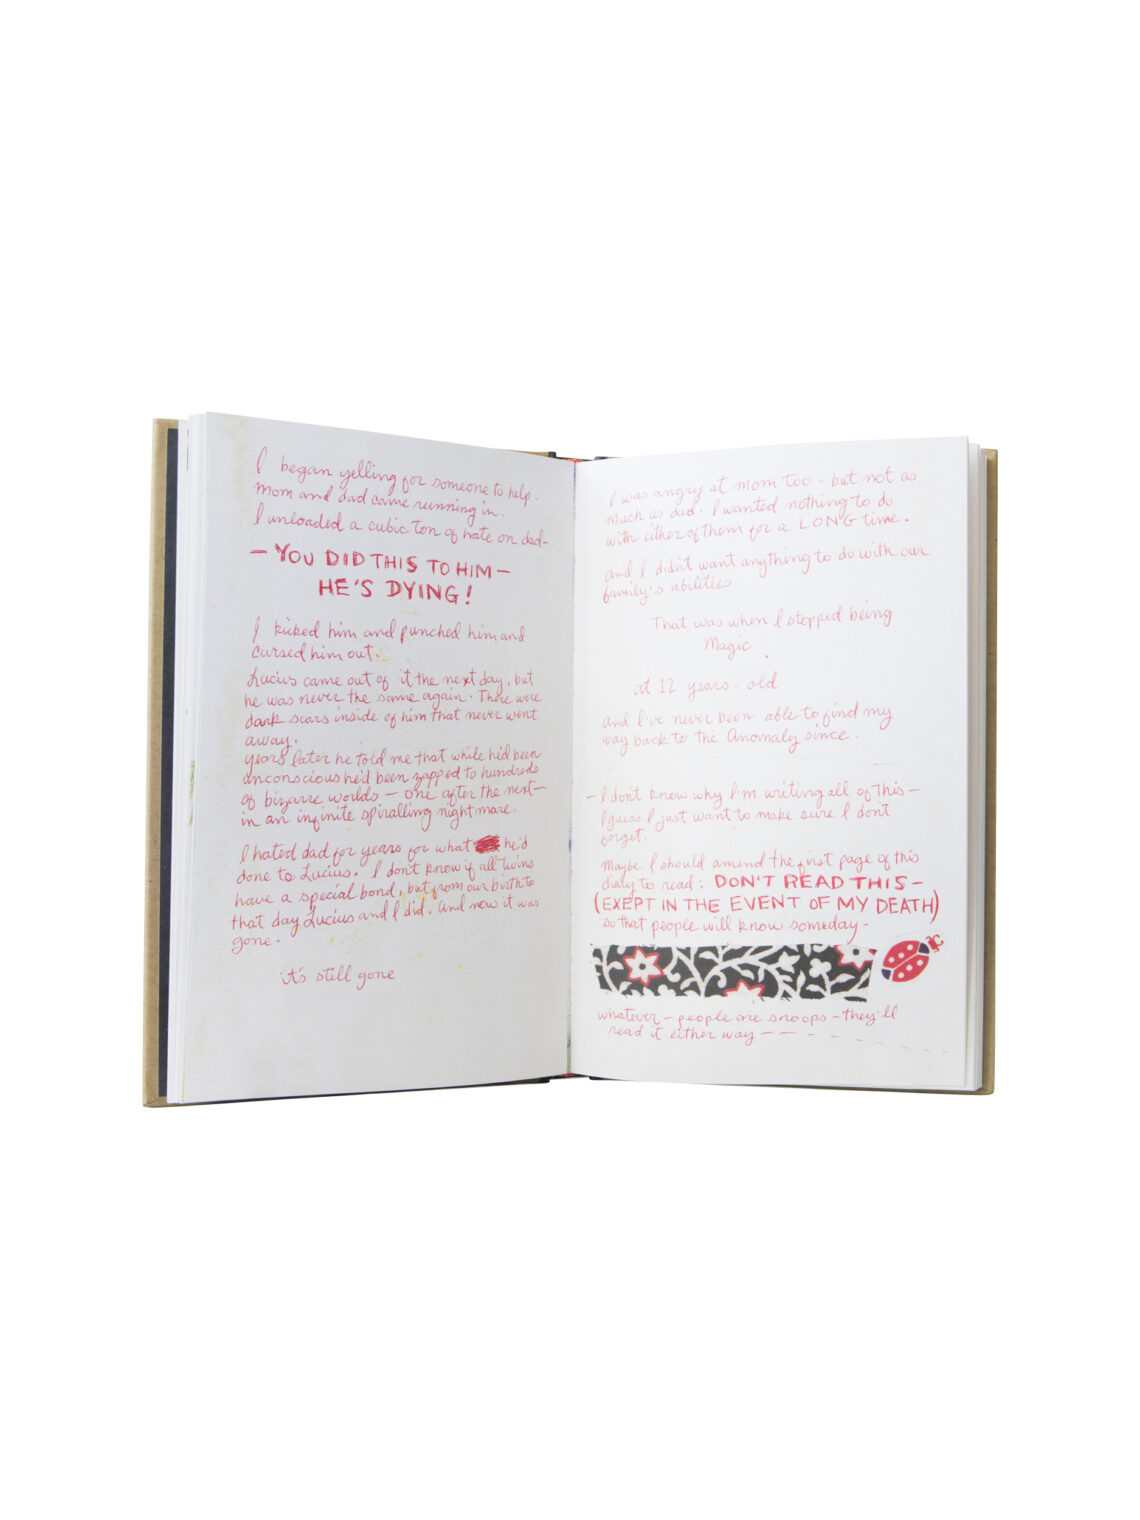 I began yelling for someone to help.
Mom and dad came running in.
I unloaded a cubic ton of hate on dad-
- YOU DID THIS TO HIM -
HE'S DYING!
I kicked him and punched him and
cursed him out.
Lucius came out of it the next day, but
he was never the same again. There were
dark scars inside of him that never went
away.
years later he told me that while he'd been
unconscious he'd been zapped to hundreds
of bizarre worlds - one after the next -
in an infinite spiralling nightmare.
I hated dad for years for what he'd
done to Lucius. I don't know if all twins
have a special bond, but from our birth to
that day Lucius and I did. And now it was
gone.
it's still gone
I was angry at mom too - but not as
much as dad. I wanted nothing to do
with either of them for a LONG time.
and I didn't want anything to do with our
family's abilities
That was when I stopped being
Magic.
at 12 years-old
and I've never been able to find my
way back to the Anomaly since.
- I don't know why I'm writing all of this -
I guess I just want to make sure I don't
forget.
Maybe I should amend the first page of this
diary to read: DON'T READ THIS -
(EXEPT IN THE EVENT OF MY DEATH)
so that people will know someday -
whatever - people are snoops - they'll
read it either way - - - - -